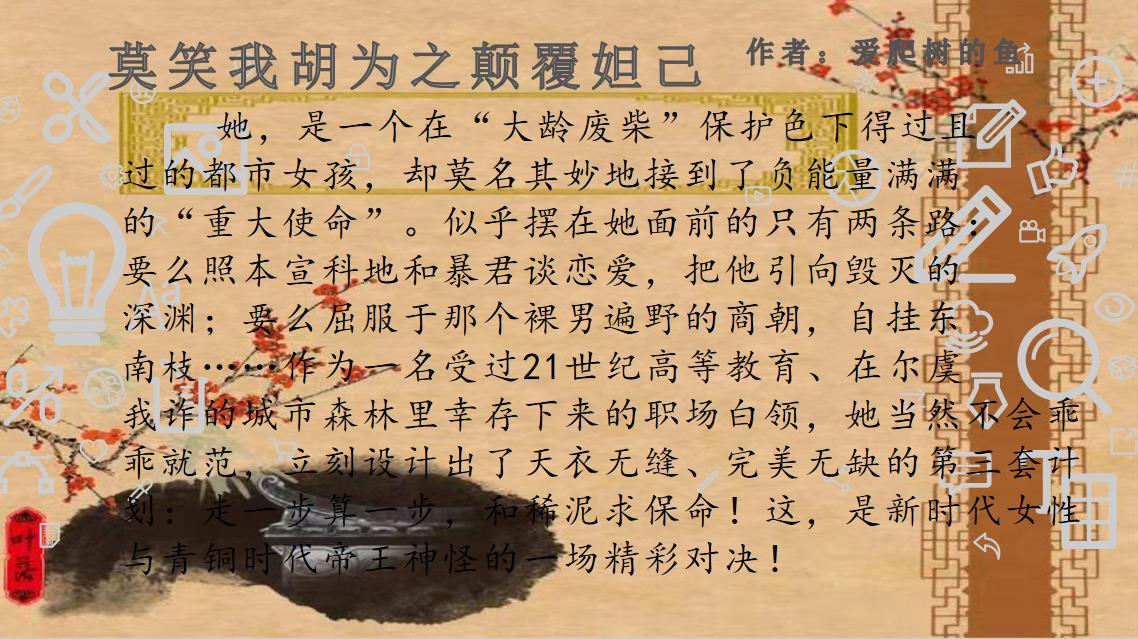 莫笑我胡为之颠覆妲己
作者：爱爬树的鱼
她，是一个在“大龄废柴”保护色下得过且
过的都市女孩，却莫名其妙地接到了负能量满满
的“重大使命”。似乎摆在她面前的只有两条路：
要么照本宣科地和暴君谈恋爱，把他引向毁灭的
深渊；要么屈服于那个裸男遍野的商朝，自挂东
南枝……作为一名受过21世纪高等教育、在尔虞
我诈的城市森林里幸存下来的职场白领，她当然不会乖
乖就范，立刻设计出了天衣无缝、完美无缺的第三套计
划：走一步算一步，和稀泥求保命！这，是新时代女性
与青铜时代帝王神怪的一场精彩对决！
Aa
叶